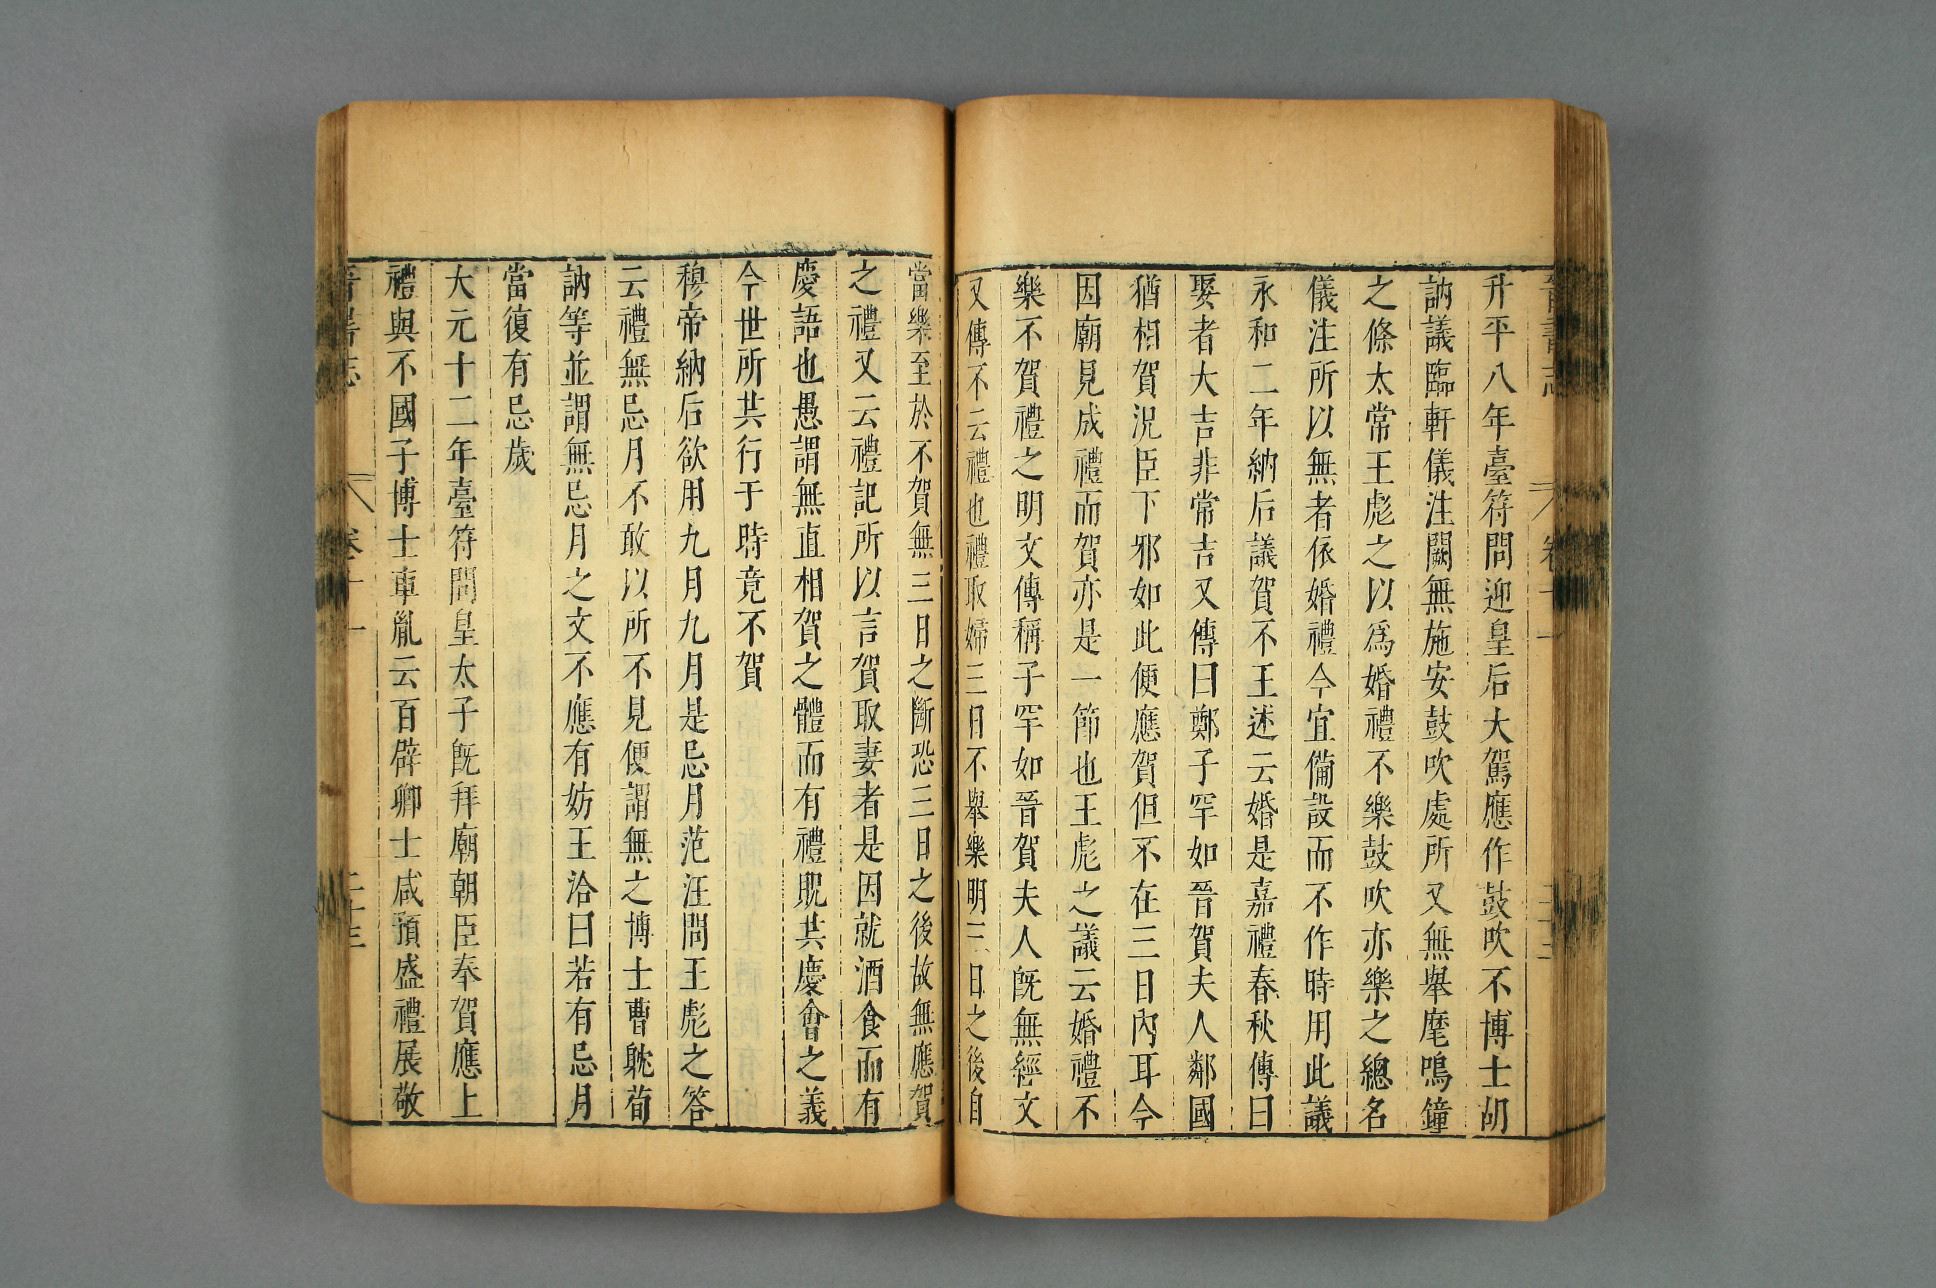 升平八年臺符問迎皇后大駕應作鼓吹不博士胡
訥議臨軒儀注闕無施安鼓吹處所又無舉麾鳴鐘
之條太常王彪之以爲婚禮不樂鼓吹亦樂之總名
儀注所以無者依婚禮今宜備設而不作時用此議
永和二年納后議賀不王述云婚是嘉禮春秋傳曰
娶者大吉非常吉又傳曰鄭子罕如晉賀夫人鄰國
猶相賀況臣下邪如此便應賀但不在三日內耳今
因廟見成禮而賀亦是一節也王彪之議云婚禮不
樂不賀禮之明文傳稱子罕如晉賀夫人旣無經文
又傳不云禮也禮取婦三日不舉樂明三日之後自
當樂至於不賀無三日之斷恐三日之後故無應賀
之禮又云禮記所以言賀取妻者是因就酒食而有
慶語也愚謂無直相賀之體而有禮貺共慶會之義
今世所共行于時竟不賀
穆帝納后欲用九月九月是忌月范汪問王彪之答
云禮無忌月不敢以所不見便謂無之博士曹耽荀
訥等並謂無忌月之文不應有妨王洽曰若有忌月
當復有忌歲
大元十二年臺符問皇太子旣拜廟朝臣奉賀應上
禮與不國子博士車胤云百辟卿士咸預盛禮展敬
晉書志 卷十一